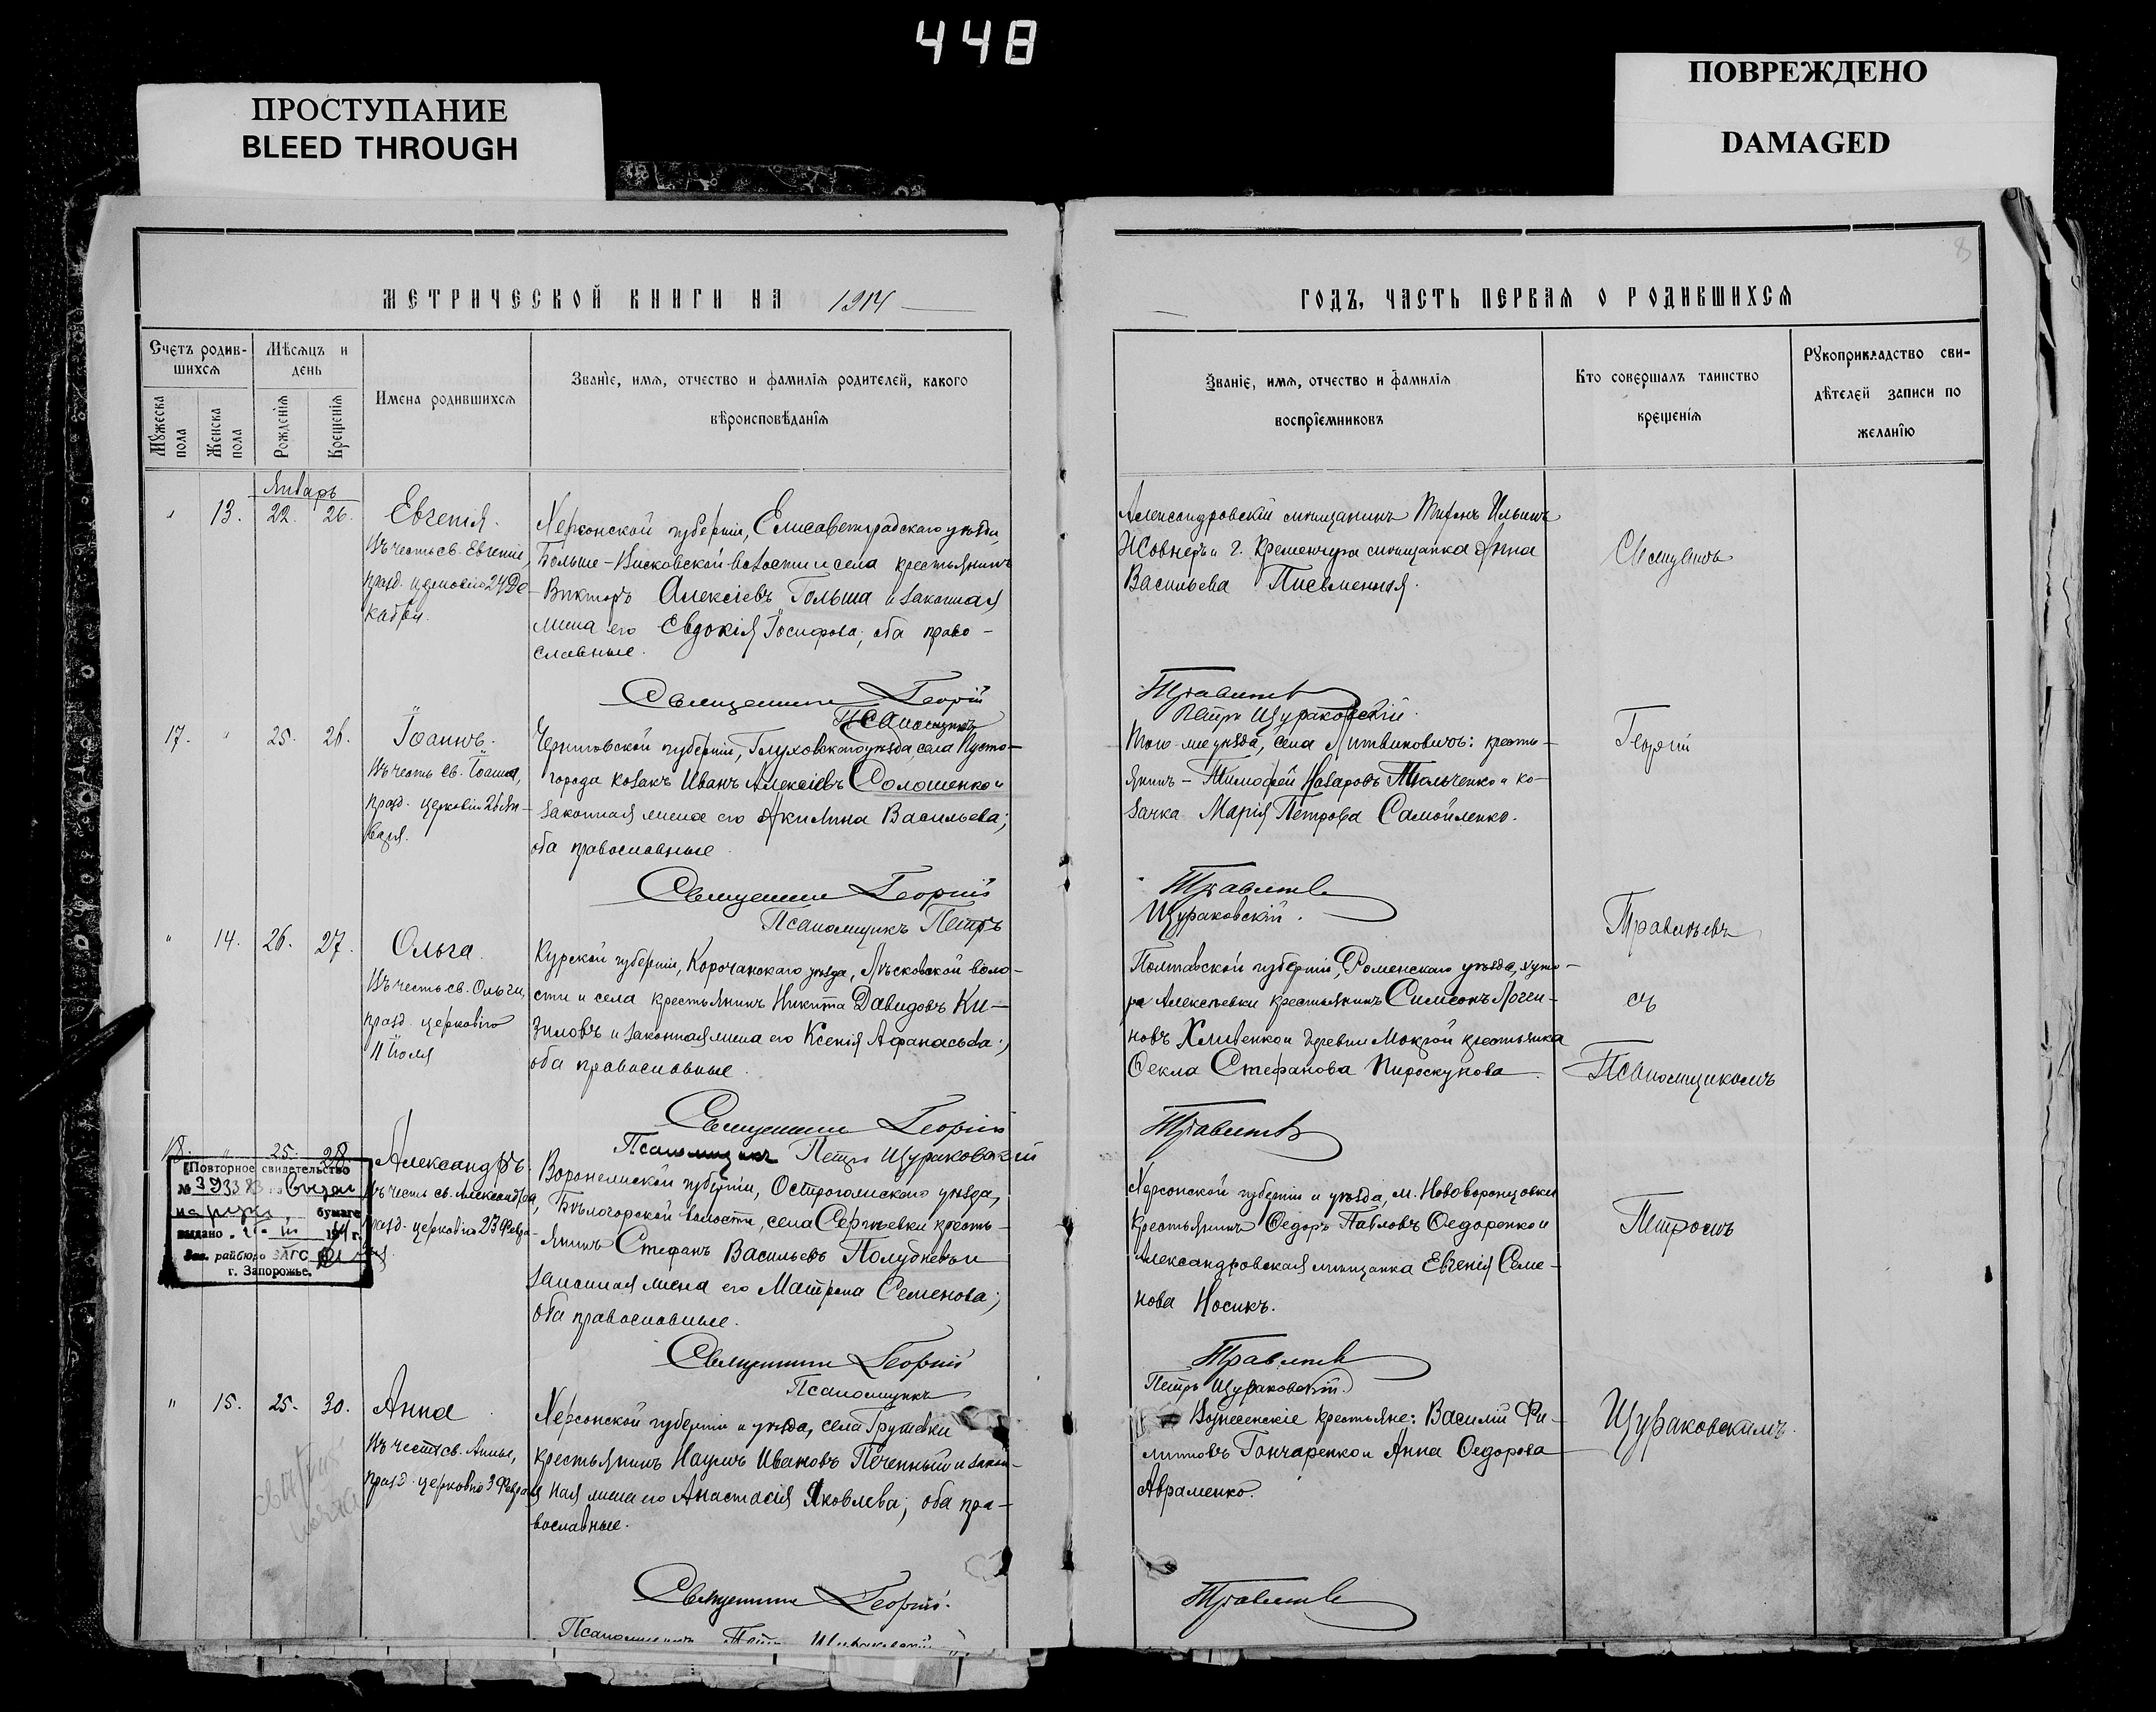 448
ПРОСТУПАНИЕ
BLEED THROUGH
ПОВРЕЖДЕНО
DAMAGED
8
МЕТРИЧЕСКОЙ КНИГИ НА 1914
Счетъ родив-
шихся
Мѣсяцъ и
день
Имена родившихся
Званіе, имя, отчество и фамилія родителей, какого
вѣроисповѣданія
Мужеска
пола
Женска
пола
Рожденія
Крещенія
Январь
" 13. 22. 26. Евгенія.
Въ честь св. Евгеніи,
празд. церковію 24 Де-
кабря.
Херсонской губерніи, Елисаветградскаго уѣзда,
Больше-Висковской волости и села крестьянинъ
Викторъ Алексіевъ Гольша и законная
жена его Евдокія Іосифова; оба право-
славные.
Священникъ Георгій
Псаломщикъ
17. " 25. 26. Іоаннъ.
Въ честь св. Іоанна,
празд. церковію 26 Ян-
варя.
Черниговской губерніи, Глуховскаго уѣзда, села Пусто-
города козакъ Иванъ Алексіевъ Солошенко и
законная жена его Акилина Васильева;
оба православные.
Священникъ Георгій
Псаломщикъ Петръ
" 14. 26. 27. Ольга.
Въ честь св. Ольги,
празд. церковію
11 Іюля
Курской губерніи, Корочанскаго уѣзда, Лѣсковской воло-
сти и села крестьянинъ Никита Давидовъ Ки-
зиловъ и законная жена его Ксенія Афанасьева;
оба православные.
Священникъ Георгій
Псаломщикъ Петръ Щураковскій
18. " 25. 28. Александръ.
Въ честь св. Александра,
празд. церковію 23 Февра-
Воронежской губерніи, Острогожскаго уѣзда,
Бѣлогорской волости, села Сергѣевки кресть-
янинъ Стефанъ Васильевъ Полубневъ и
законная жена его Матрона Семенова;
оба православные.
Повторное свидетельство
№
на руки, бумаге
выдано
Зав. райбюро ЗАГС
г. Запорожье.
Священникъ Георгій
Псаломщикъ
" 15. 25. 30. Анна
Въ честь св. Анны,
празд. церковію 3 Февраля
Херсонской губерніи и уѣзда, села Грушевки
крестьянинъ Наумъ Ивановъ Печенный и закон-
ная жена его Анастасія Яковлева; оба пра-
вославные.
Священникъ Георгій
Псаломщикъ Петръ Щураковскій
ГОДЪ, ЧАСТЬ ПЕРВАЯ О РОДИВШИХСЯ
Званіе, имя, отчество и фамилія
воспріемниковъ
Кто совершалъ таинство
крещенія
Рукоприкладство сви-
дѣтелей записи по
желанію
Александровскій мѣщанинъ Тихонъ Ильинъ
Жовнеръ и г. Кременчуга мѣщанка Анна
Васильева Письменная.
Травлѣевъ
Петръ Щураковскій.
Того-же уѣзда, села Литвиновичъ: кресть-
янинъ - Тимофей Назаровъ Ткальченко и ко-
зачка Марія Петрова Самойленко.
Травлѣевъ
Щураковскій.
Полтавской губерніи, Роменскаго уѣзда, хуто-
ра Алексѣевки крестьянинъ Симеонъ Логги-
новъ Хливенко и деревни Мокрой крестьянка
Ѳекла Стефанова Пироскунова.
Травлѣевъ
Херсонской губерніи и уѣзда, м. Нововоронцовки
крестьянинъ Ѳедоръ Павловъ Ѳедоренко и
Александровская мѣщанка Евгенія Семе-
нова Носикъ.
Травлѣевъ
Петръ Щураковскій.
Вознесенскіе крестьяне: Василій Фи-
липповъ Гончаренко и Анна Ѳедорова
Авраменко.
Травлѣевъ
Священникъ
Георгій
Травлѣевъ
съ
Псаломщикомъ
Петромъ
Щураковскимъ.